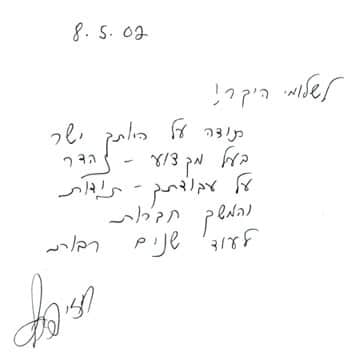 8.5.02
לשלומי היקר!
תודה על היותך ישר
בעל מקצוע - נהדר
על עבודתך - תודות
והמשך חברות
לעוד שנים רבות